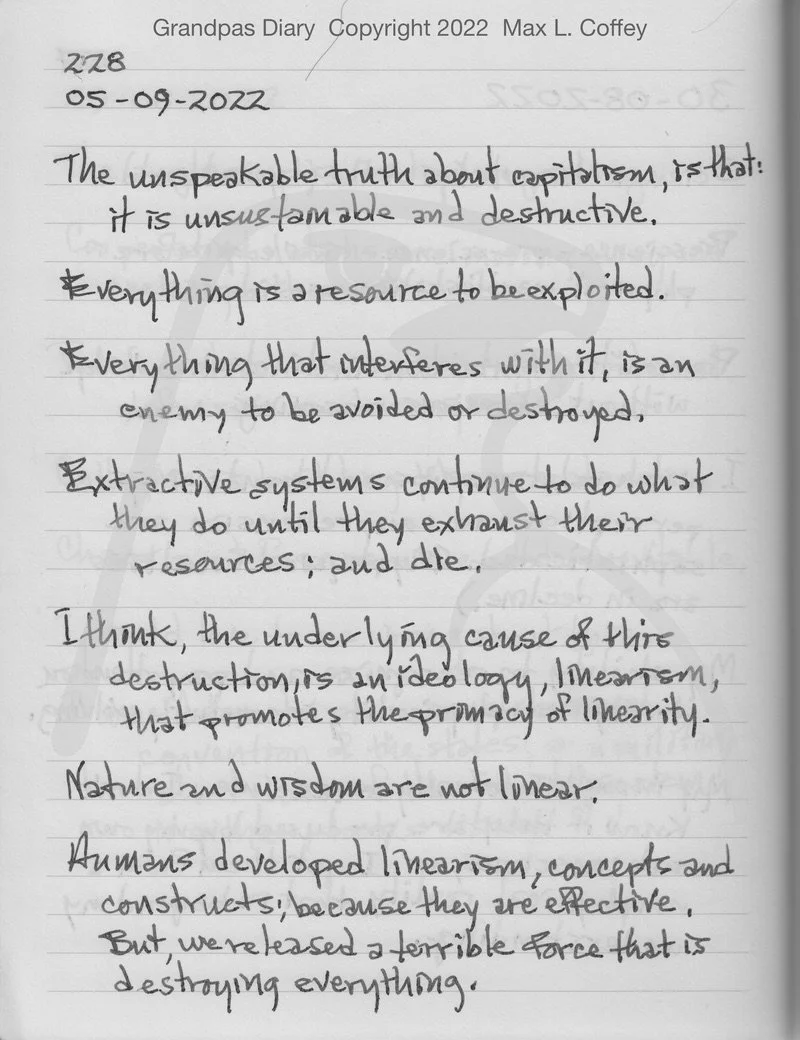 Grandpas Diary Copyright 2022 Max L. Coffey
228
05-09-2022
The unspeakable truth about capitalism, is that:
it is unsustainable and destructive.
Everything is a resource to be exploited.
Everything that interferes with it, is an
enemy to be avoided or destroyed.
Extractive systems continue to do what
they do until they exhaust their
resources; and die.
I think, the underlying cause of this
destruction, is an ideology, linearism,
that promotes the primacy of linearity.
Nature and wisdom are not linear.
Humans developed linearism, concepts and
constructs; because they are effective.
But, we released a terrible force that is
destroying everything.